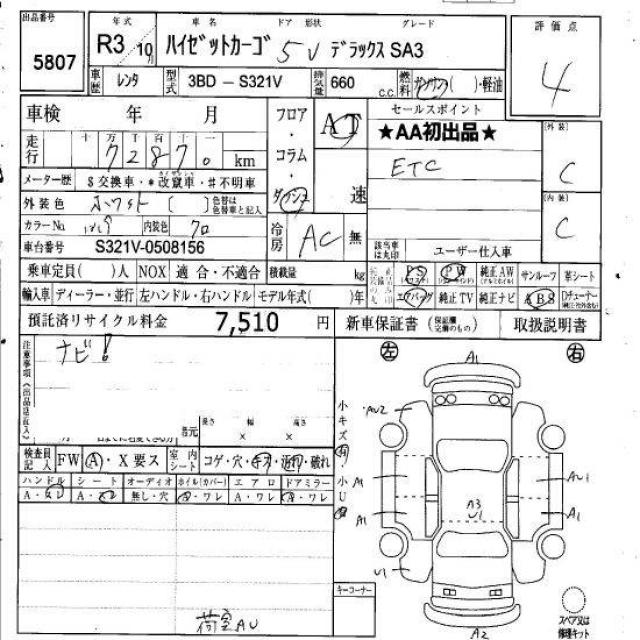 出品番号 年式 車名 ドア 形状 グレード 評価点
5807 R3 10月 ハイゼットカーゴ 5V デラックス SA3 4
車歴 レンタ 型式 3BD－S321V 排気量 660 c.c. 燃料 ガソリン( )・軽油
車検 年 月 フロア・コラム・ダッシュ AT 速 セールスポイント
★AA初出品★ [外装] C
走行 十 万 千 百 十 一
7 2 8 7 0 km ETC
メーター歴 $交換車・*改竄車・#不明車
外装色 ホワイト ( ) 色替は色替車と記入 [内装] C
カラーNo. 内装色 クロ 冷房 AC 無
車台番号 S321V-0508156 該当車は丸印 ユーザー仕入車
乗車定員( )人 NOX 適合・不適合 積載量 kg 純正装備の丸印 PS PW 純正AW サンルーフ 革シート
輸入車 ディーラー・並行 左ハンドル・右ハンドル モデル年式( )年 エアバッグ 純正TV 純正ナビ ABS Dチューナー
預託済リサイクル料金 7,510 円 新車保証書 (保証書 完備のもの) 取扱説明書
注意事項《出品店記入》 ナビ! 左 右
A1
小キズ有・小U有
AU2
長さ 幅 高さ
× ×
検査員記入 FW A・X要ス 室内シート コゲ・穴・キズ・汚れ・破れ A1 AU1
ハンドル シート オーディオ ホイル(カバー) エアロ ドアミラー
無し・穴 A・ワレ A・ワレ A・ワレ A1 A3 U1 A1
U1
キーコーナー
荷室AU A2 スペア又は修理キット